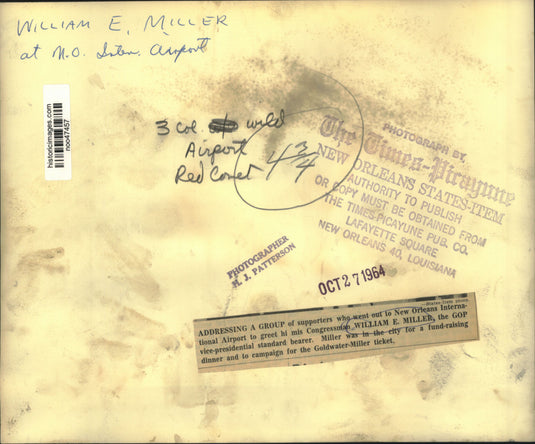 WILLIAM E. MILLER
at N.O. Inter. Airport
historicimages.com
noo47457
3 col wild
Airport
Red Comet
4 3/4
PHOTOGRAPH BY
The Times-Picayune
NEW ORLEANS STATES-ITEM
AUTHORITY TO PUBLISH
OR COPY MUST BE OBTAINED FROM
THE TIMES-PICAYUNE PUB. CO.
LAFAYETTE SQUARE
NEW ORLEANS 40, LOUISIANA
PHOTOGRAPHER
H. J. PATTERSON
OCT 27 1964
—States-Item photo
ADDRESSING A GROUP of supporters who went out to New Orleans Interna-
tional Airport to greet hi mis Congressman WILLIAM E. MILLER, the GOP
vice-presidential standard bearer. Miller was in the city for a fund-raising
dinner and to campaign for the Goldwater-Miller ticket.